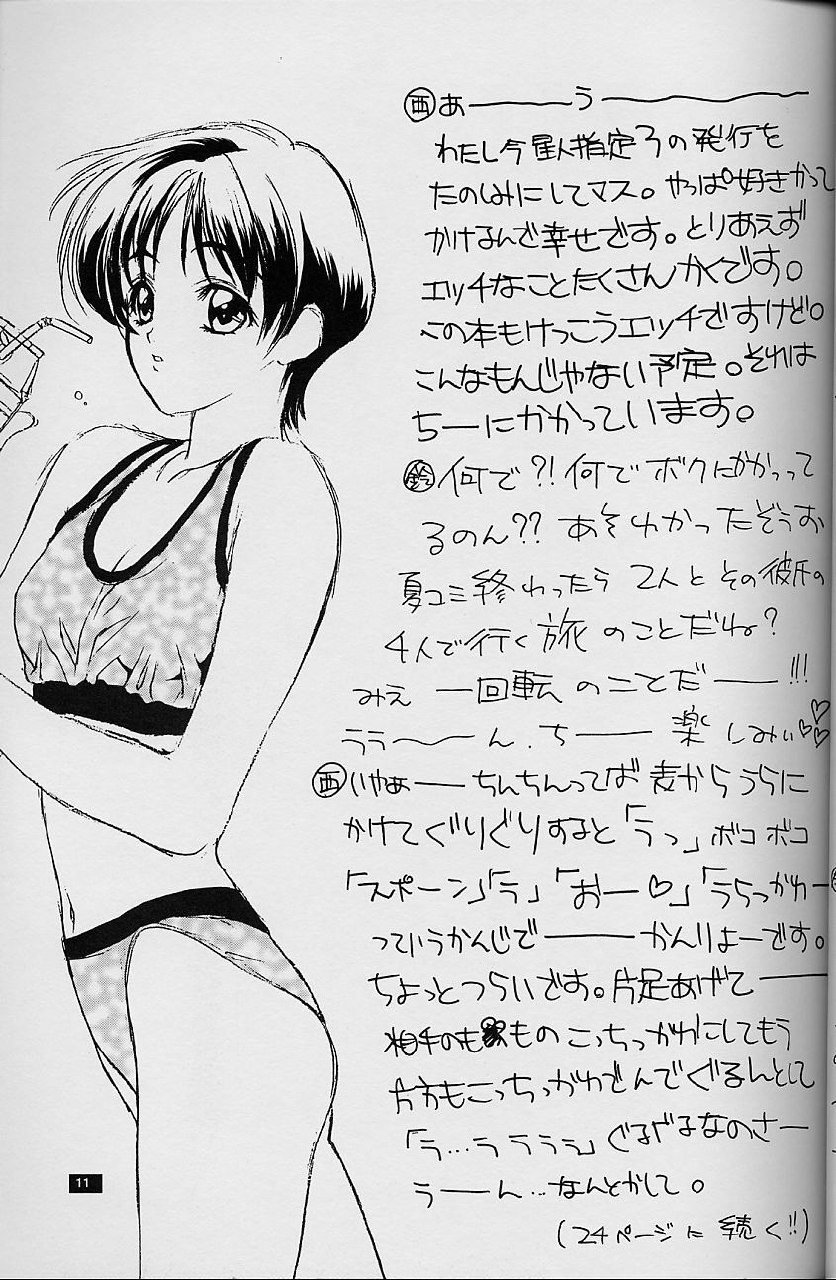 ㊄ あーーーうーーーー
わたし今星人指定3の発行を
たのしみにしてマス。やっぱ好きかって
かけるんで幸せです。とりあえず
エッチなことたくさんかくです。
この本もけっこうエッチですけど。
こんなもんじゃない予定。それは
ちーにかかっています。
鈴 何で?!何でボクにかかって
るのん??あそわかったぞうお
夏コミ終わったら2人とその彼氏の
4人で行く旅のことだね?
みえ一回転のことだーー!!!
ララ〜〜ん、ちーー楽しみぃ♡♡♡
西 いやぁーーちんちんってば麦からうらに
かけてぐりぐりすると「うっ」ボコボコ
「スポーン」「う」「おー♡」「うらっかわー
っていうかんじでーーーかんりょーです。
ちょっとつらいです。片足あげてーー
相手のももものこっちっがわにしてもう
片方もこっちっがわでんでぐるんとして
「う…うううぇ」ぐるぐるなのさー
うーーん…なんとかして。
(24ページに続く!!)
11